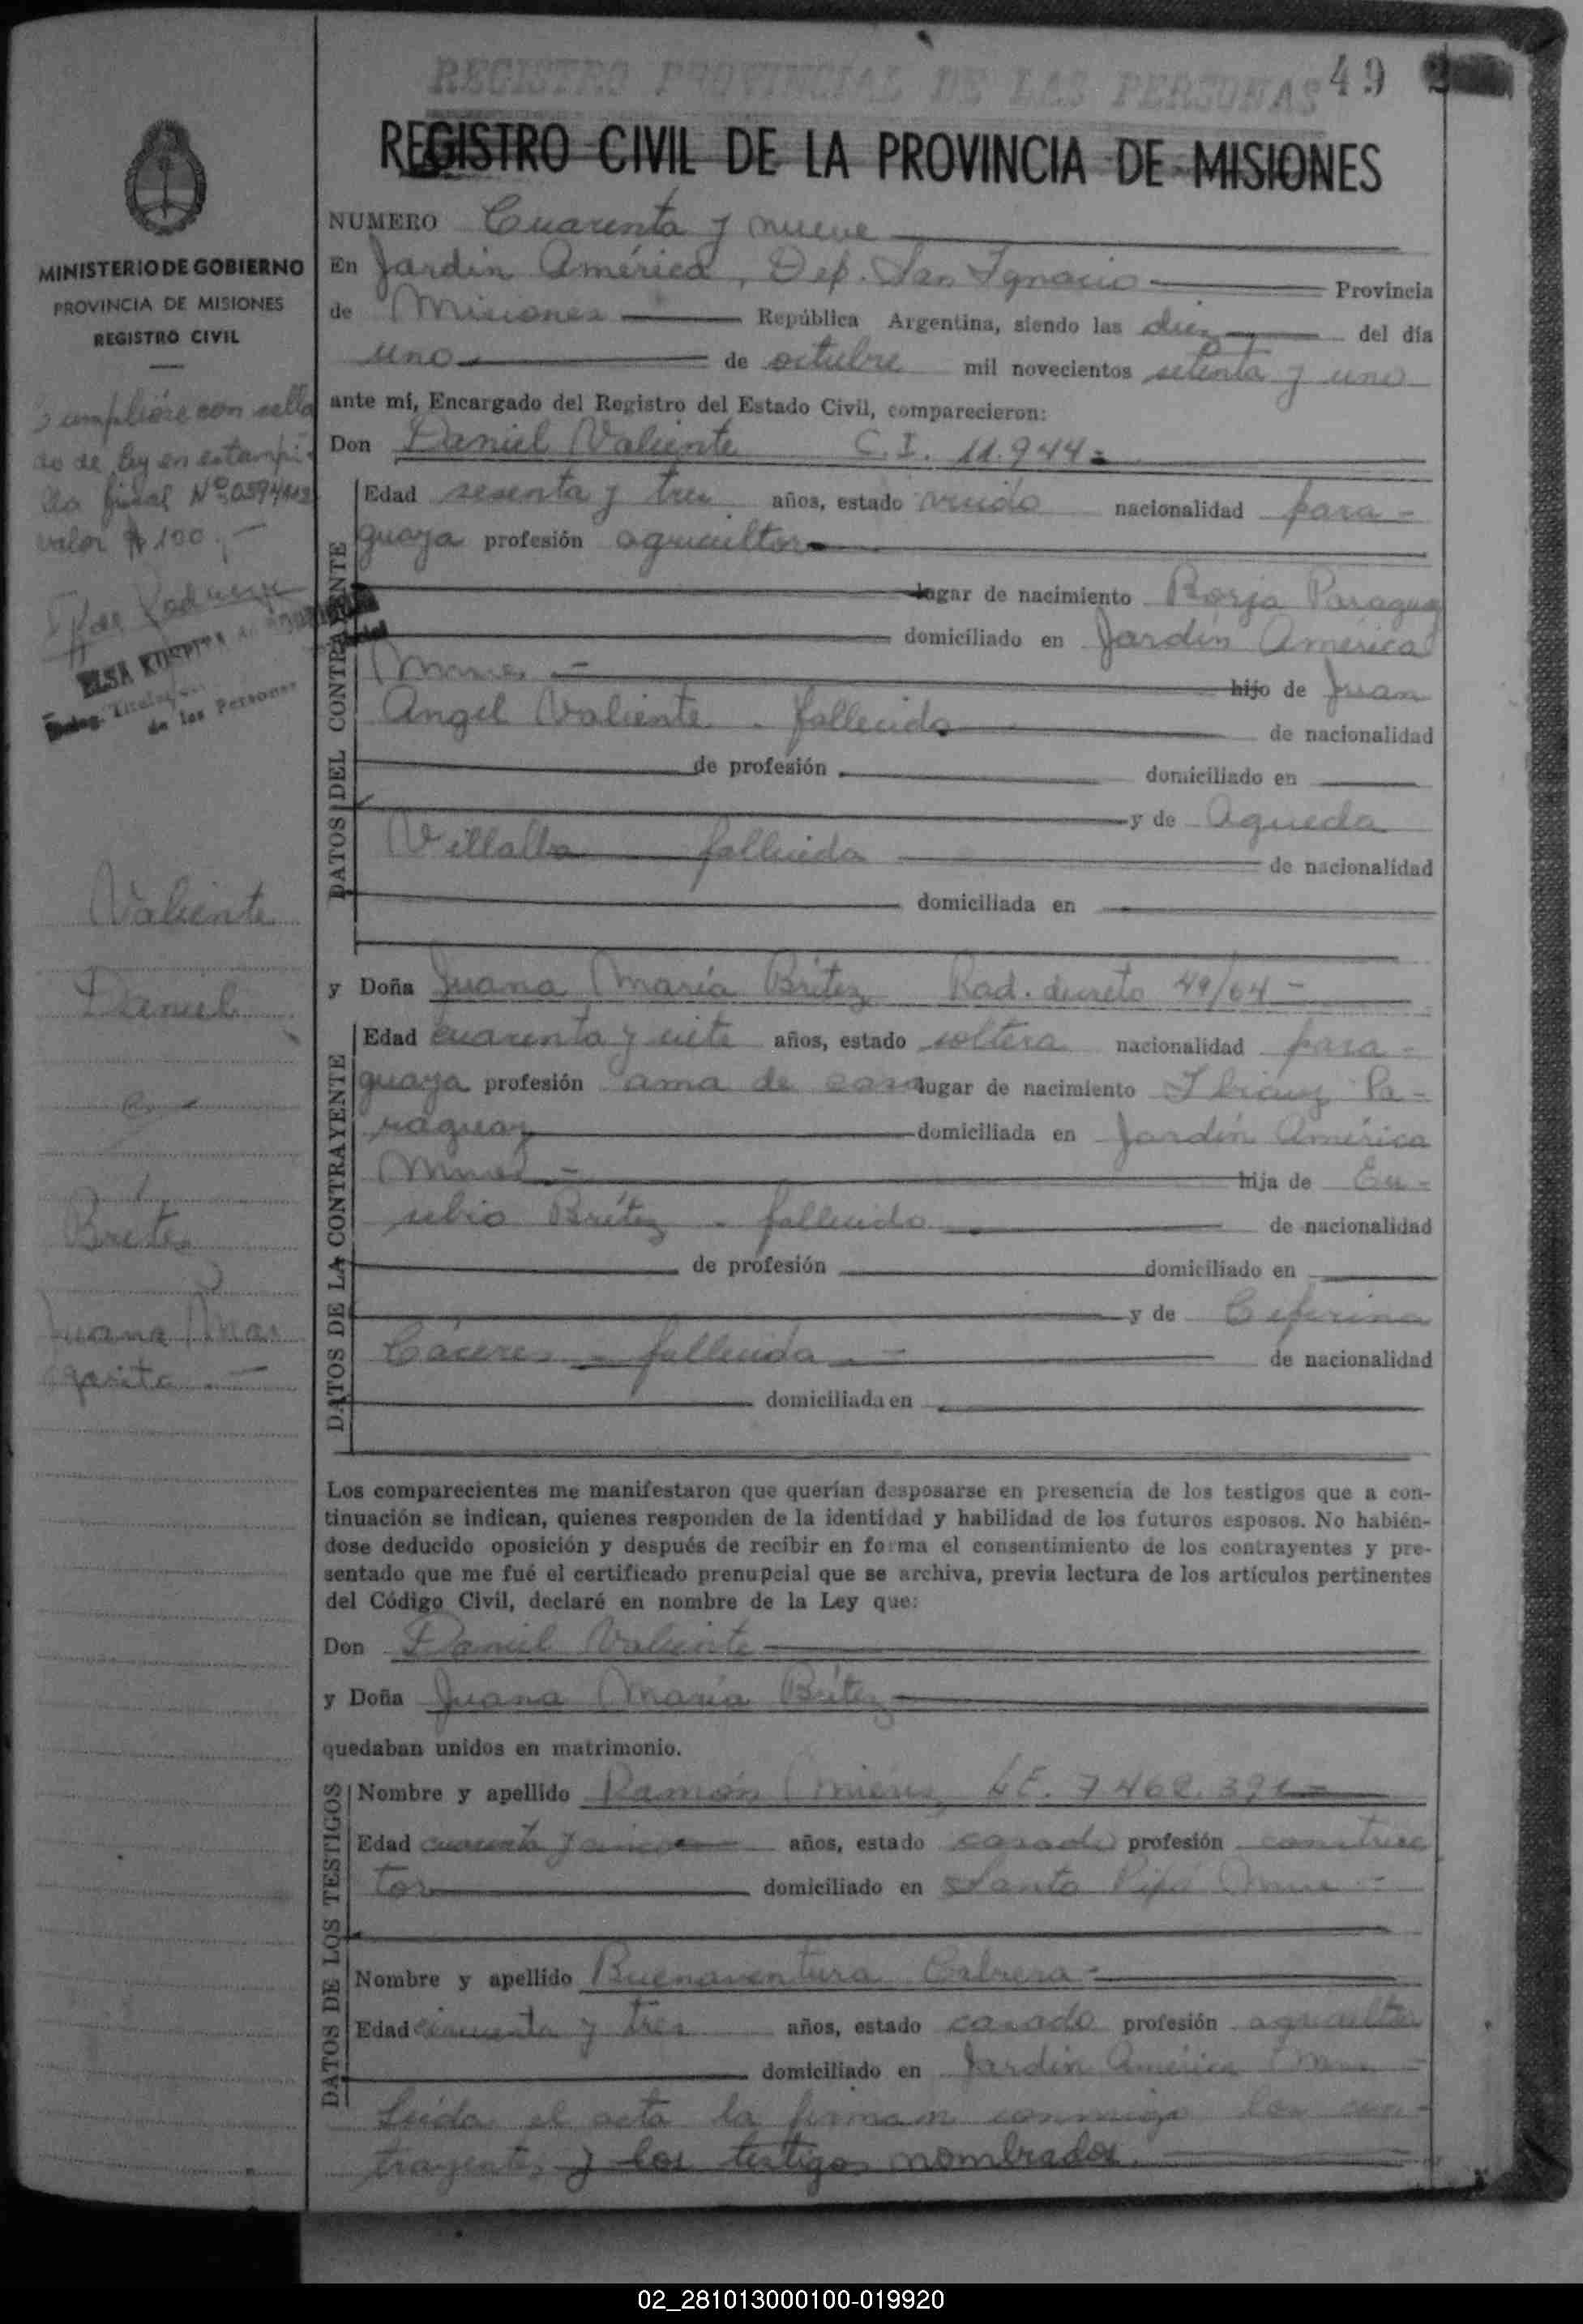 REGISTRO PROVINCIAL DE LAS PERSONAS
49
REGISTRO CIVIL DE LA PROVINCIA DE MISIONES
MINISTERIO DE GOBIERNO
PROVINCIA DE MISIONES
REGISTRO CIVIL
con sella
do de ley en estampi-
lla fiscal Nº
valor $ 100.-
ELSA
de las Personas
Valiente
Daniel
Juana Mar
garita
NUMERO Cuarenta y nueve
En Jardin América, Dep. San Ignacio Provincia
de Misiones República Argentina, siendo las diez del día
uno de octubre mil novecientos setenta y uno
ante mi, Encargado del Registro del Estado Civil, comparecieron:
Don Daniel Valiente C.I. 11.944=
DATOS DEL CONTRAYENTE
Edad sesenta y tres años, estado viudo nacionalidad para-
guaya profesión agricultor
lugar de nacimiento Borja Paraguay
domiciliado en Jardín América
Mnes - hijo de Juan
Angel Valiente - fallecido de nacionalidad
de profesión domiciliado en
y de Agueda
Villalba fallecida de nacionalidad
domiciliada en
y Doña Juana María Britez Rad. decreto 49/64 -
DATOS DE LA CONTRAYENTE
Edad cuarenta y siete años, estado soltera nacionalidad para-
guaya profesión ama de casa lugar de nacimiento Pa-
raguay domiciliada en Jardín América
Mnes - hija de Eu-
sebio Britez - fallecido de nacionalidad
de profesión domiciliado en
y de Ceferina
Cáceres - fallecida - de nacionalidad
domiciliada en
Los comparecientes me manifestaron que querían desposarse en presencia de los testigos que a con-
tinuación se indican, quienes responden de la identidad y habilidad de los futuros esposos. No habién-
dose deducido oposición y después de recibir en forma el consentimiento de los contrayentes y pre-
sentado que me fué el certificado prenupcial que se archiva, previa lectura de los artículos pertinentes
del Código Civil, declaré en nombre de la Ley que:
Don Daniel Valiente
y Doña Juana María Britez
quedaban unidos en matrimonio.
DATOS DE LOS TESTIGOS
Nombre y apellido Ramón L.E. 7.462.391
Edad cuarenta y cinco años, estado casado profesión construc
tor domiciliado en Santo Pipó Mnes -
Nombre y apellido Buenaventura Cabrera-
Edad cincuenta y tres años, estado casado profesión agricultor
domiciliado en Jardín América Mnes -
Leída el acta la firman conmigo los con-
trayentes y los testigos nombrados.
02_281013000100-019920